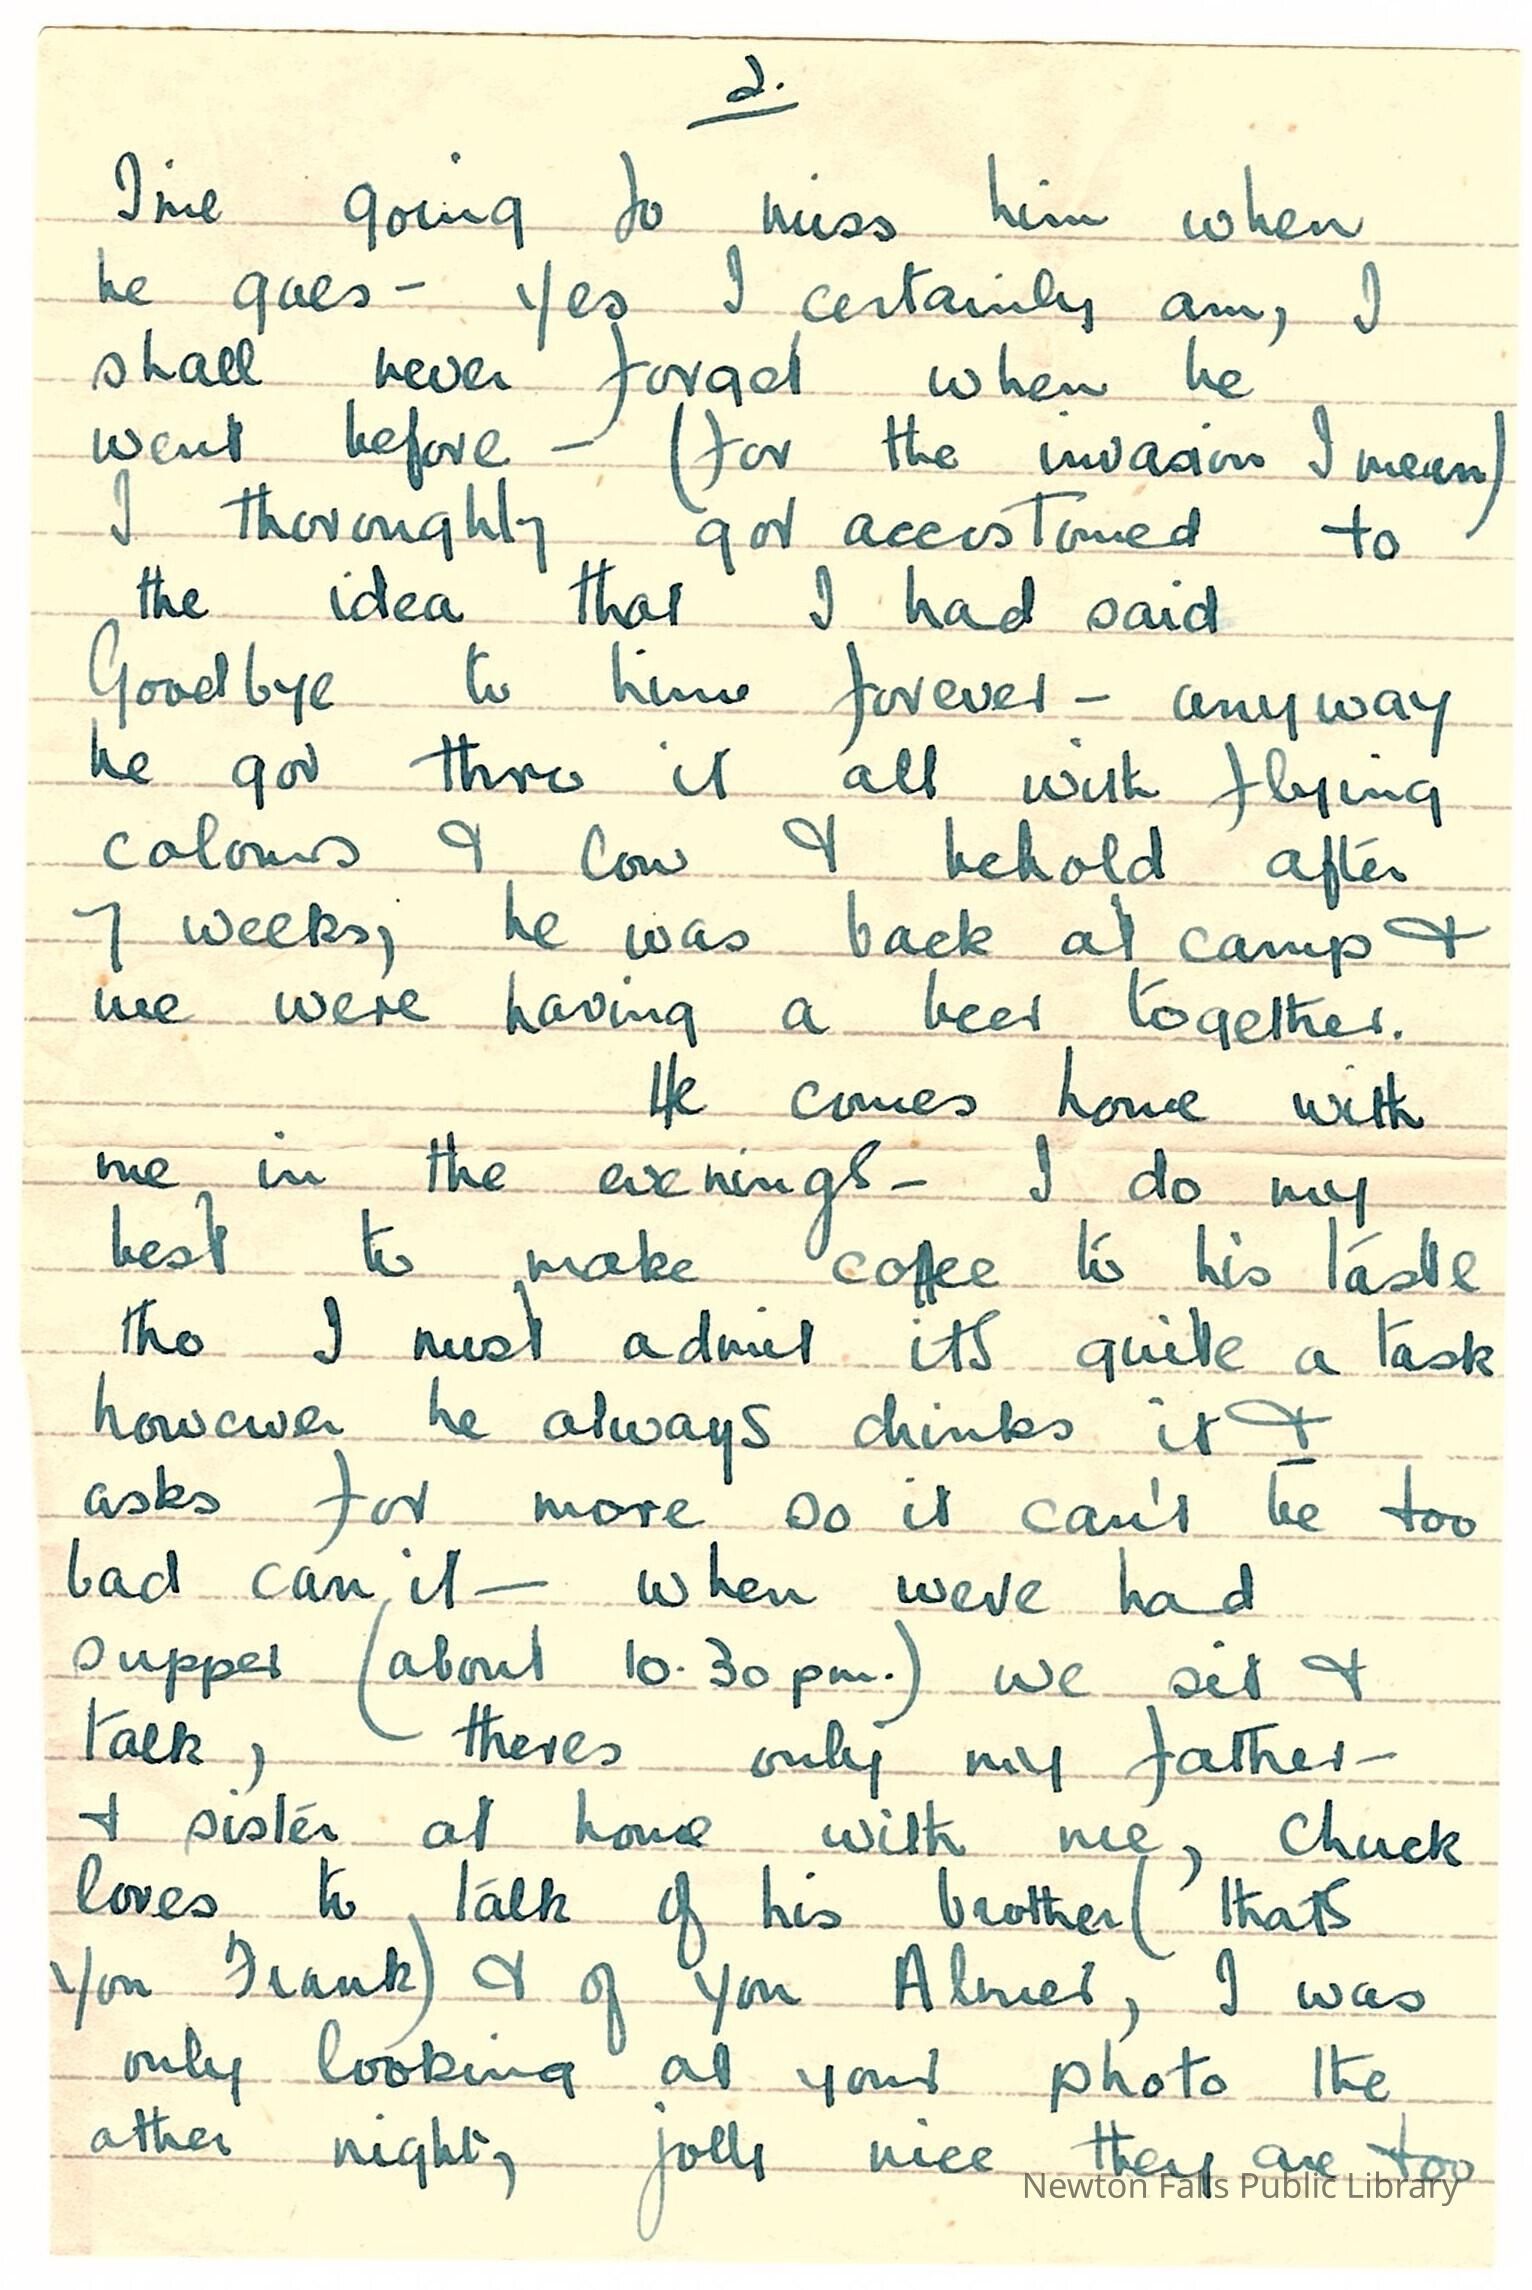 2.
I'me going to miss him when
he goes - yes I certainly am, I
shall never forget when he
went before - (for the invasion I mean)
I thoroughly got accustomed to
the idea that I had said
Goodbye to him forever - anyway
he got thro it all with flying
colours & low & behold after
7 weeks, he was back at camp &
we were having a beer together.
He comes home with
me in the evenings - I do my
best to make coffee to his taste
tho I must admit its quite a task
however he always drinks it &
asks for more so it can't be too
bad can it - when weve had
supper (about 10.30 pm.) we sit &
talk, theres only my father -
& sister at home with me, Chuck
loves to talk of his brother (thats
you Frank) & of you Almer, I was
only looking at your photo the
other night, jolly nice they are too
Newton Falls Public Library